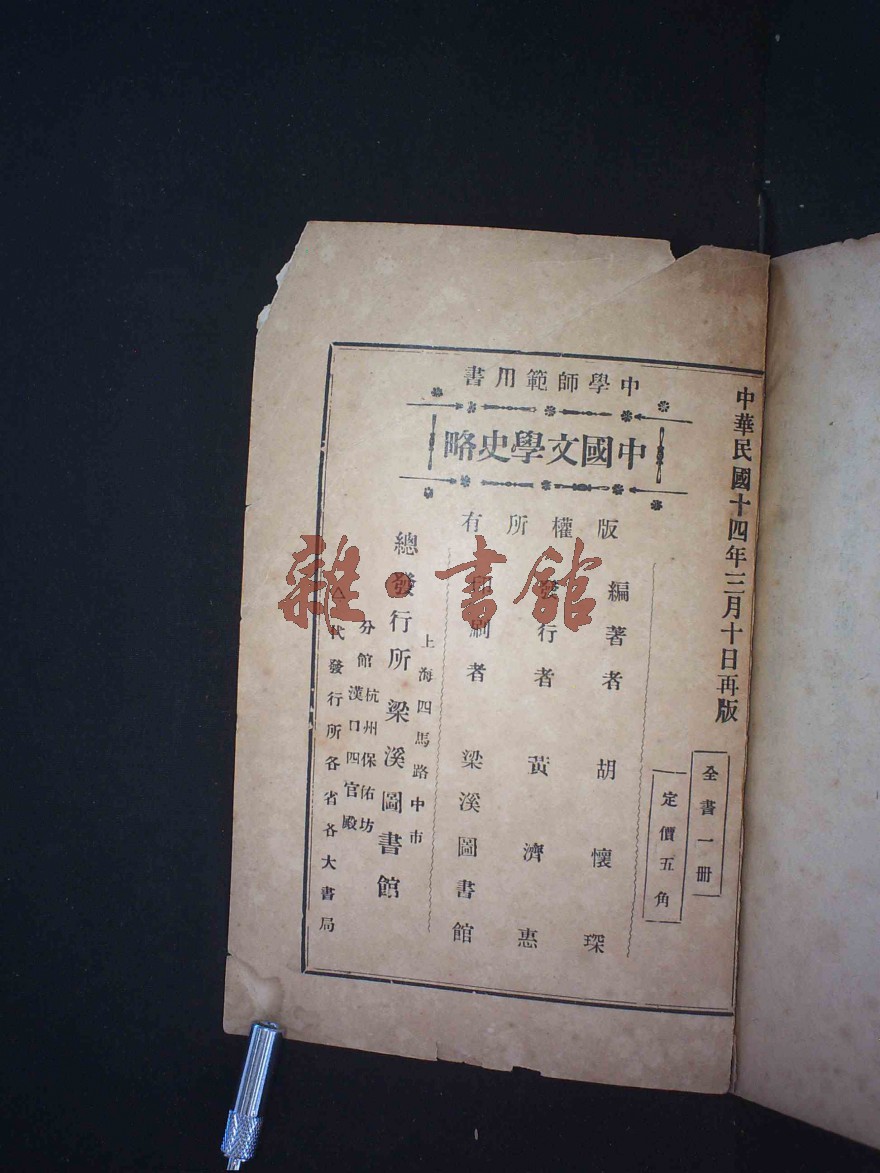 中華民國十四年三月十日再版
全書一册
定價五角
中學師範用書
中國文學史略
版權所有
編著者 胡懷琛
發行者 黃濟惠
印刷者 梁溪圖書館
上海四馬路中市
總發行所 梁溪圖書館
分館 杭州保佑坊
漢口四官殿
△代發行所各省各大書局
雜·書館